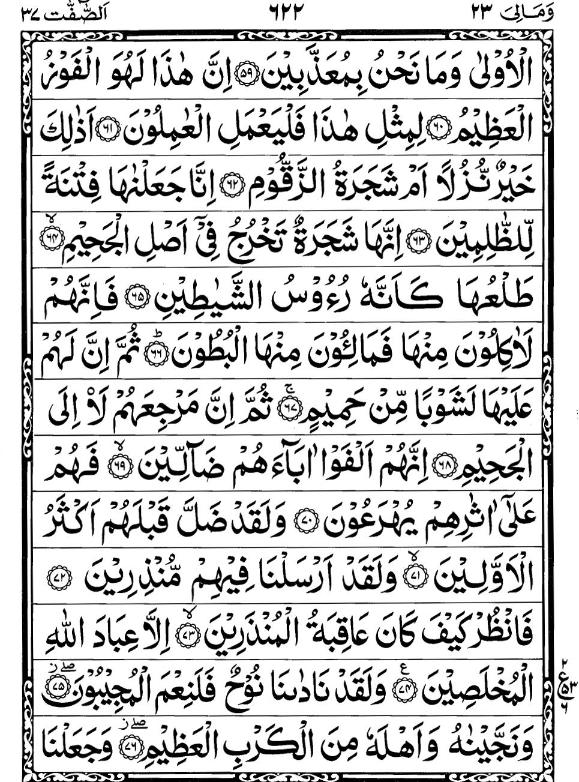 وَمَالِیَ ٢٣ ٦٢٢ اَلصّٰٓفّٰت ٣٧
الْاُوْلٰى وَمَا نَحْنُ بِمُعَذَّبِيْنَ ﴿٥٩﴾ اِنَّ هٰذَا لَهُوَ الْفَوْزُ
الْعَظِيْمُ ﴿٦٠﴾ لِمِثْلِ هٰذَا فَلْيَعْمَلِ الْعٰمِلُوْنَ ﴿٦١﴾ اَذٰلِكَ
خَيْرٌ نُّزُلًا اَمْ شَجَرَةُ الزَّقُّوْمِ ﴿٦٢﴾ اِنَّا جَعَلْنٰهَا فِتْنَةً
لِّلظّٰلِمِيْنَ ﴿٦٣﴾ اِنَّهَا شَجَرَةٌ تَخْرُجُ فِيْٓ اَصْلِ الْجَحِيْمِ ۙ﴿٦٤﴾
طَلْعُهَا كَاَنَّهٗ رُءُوْسُ الشَّيٰطِيْنِ ﴿٦٥﴾ فَاِنَّهُمْ
لَاٰكِلُوْنَ مِنْهَا فَمَالِـُٔوْنَ مِنْهَا الْبُطُوْنَ ؕ﴿٦٦﴾ ثُمَّ اِنَّ لَهُمْ
عَلَيْهَا لَشَوْبًا مِّنْ حَمِيْمٍ ۚ﴿٦٧﴾ ثُمَّ اِنَّ مَرْجِعَهُمْ لَا۟اِلَى
الْجَحِيْمِ ﴿٦٨﴾ اِنَّهُمْ اَلْفَوْا اٰبَآءَهُمْ ضَآلِّيْنَ ۙ﴿٦٩﴾ فَهُمْ
عَلٰٓى اٰثٰرِهِمْ يُهْرَعُوْنَ ﴿٧٠﴾ وَلَقَدْ ضَلَّ قَبْلَهُمْ اَكْثَرُ
الْاَوَّلِيْنَ ۙ﴿٧١﴾ وَلَقَدْ اَرْسَلْنَا فِيْهِمْ مُّنْذِرِيْنَ ﴿٧٢﴾
فَانْظُرْ كَيْفَ كَانَ عَاقِبَةُ الْمُنْذَرِيْنَ ۙ﴿٧٣﴾ اِلَّا عِبَادَ اللّٰهِ
الْمُخْلَصِيْنَ ﴿٧٤﴾ ع وَلَقَدْ نَادٰىنَا نُوْحٌ فَلَنِعْمَ الْمُجِيْبُوْنَ ۖ﴿٧٥﴾
٢
ع ٥٣
٦
وَنَجَّيْنٰهُ وَاَهْلَهٗ مِنَ الْكَرْبِ الْعَظِيْمِ ۖ﴿٧٦﴾ وَجَعَلْنَا